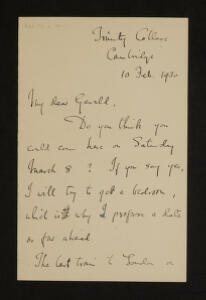 Trinity College
Cambridge
10 Feb. 1930
My dear Gerald,
Do you think you
could come here on Saturday
March 8 ? If you say yes,
I will try to get a bedroom,
which is why I propose a date
so far ahead
The last train to London on